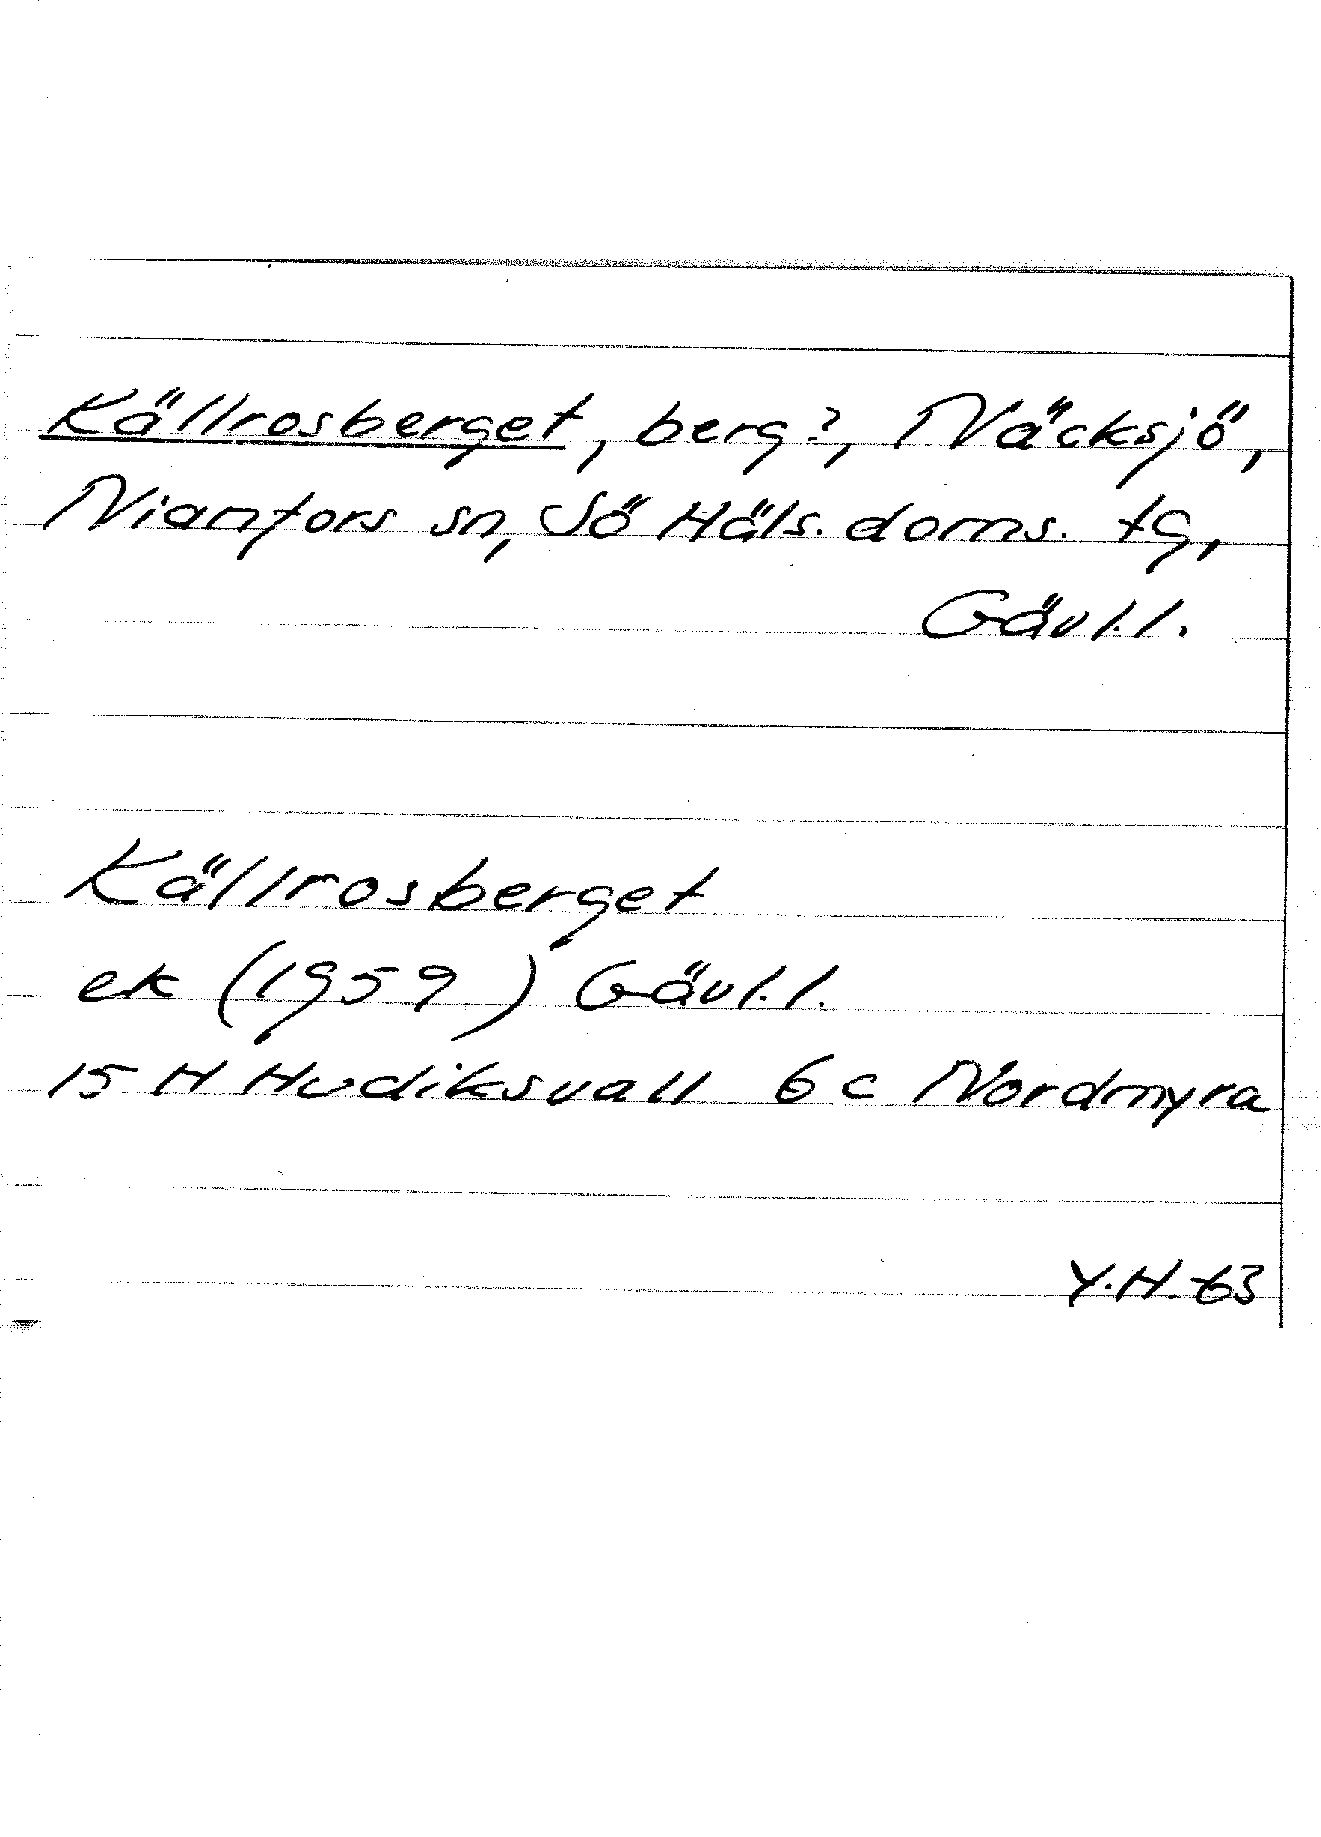 Källrosberget, berg?, Näcksjö,
Nianfors sn, Sö Häls. doms. tg,
Gävl.l.
Källrosberget
ek (1959) Gävl.l.
15 H Hudiksvall 6 c Nordmyra
Y.H. 63